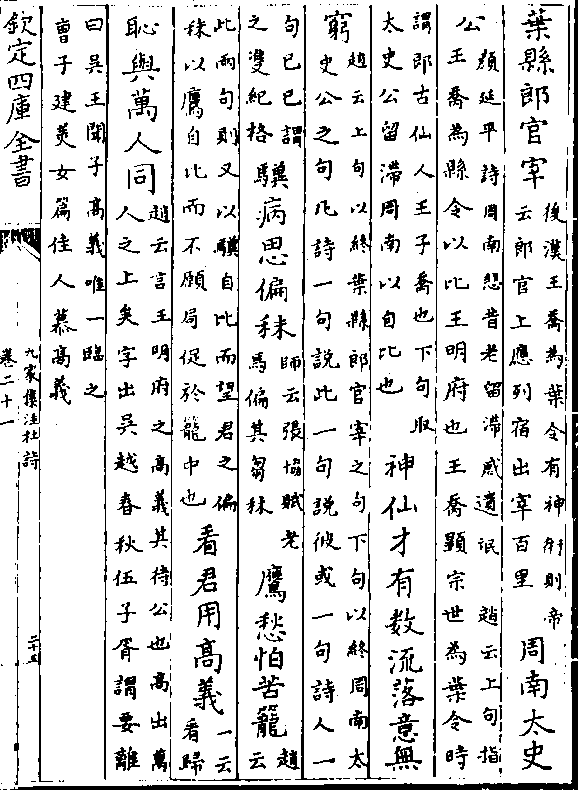 葉縣郎官宰
後漢王喬為葉令有神術則帝
云郎官上應列宿出宰百里
周南太史
顔延平詩周南悲昔老留滯感遺氓 趙云上句指
公王喬為縣令以比王明府也王喬顯宗世為葉令時
謂即古仙人王子喬也下句取
太史公留滯周南以自比也
神仙才有數流落意無
窮
趙云上句以終葉縣郎官宰之句下句以終周南太
史公之句凡詩一句說此一句說彼或一句詩人一
句已已謂
之雙紀格
驥病思偏秣
師云張協賦老
馬偏其芻秣
鷹愁怕苦籠
趙
云
此兩句則又以驥自比而望君之偏
秣以鷹自比而不願局促於籠中也
看君用高義
一云
看歸
恥與萬人同
趙云言王明府之高義其待公也高出萬
人之上矣字出吳越春秋伍子胥謂要離
曰吳王聞子高義唯一臨之
曹子建美女篇佳人慕高義
欽定四庫全書
九家集注杜詩
卷二十一
二十五